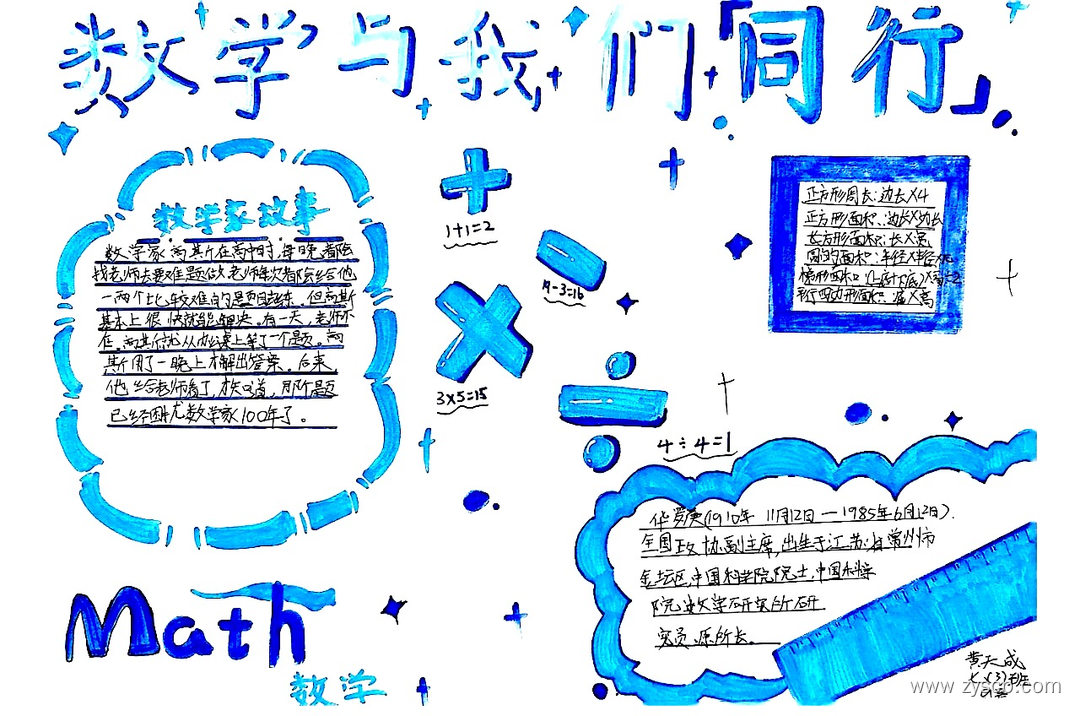 数学与我们「同行」
数学家故事
数学家高斯在高中时,每晚都会
找老师去要难题做,老师每次都会给他
一两个比较难的题目练。但高斯
基本上很快就能解决。有一天,老师不
在,高斯就从办公桌上拿了一个题。高
斯用了一晚上才解出答案。后来,
他给老师看了,才知道,那个题
已经困扰数学家100年了。
1+1=2
19-3=16
3×5=15
4÷4=1
正方形周长:边长×4
正方形面积:边长×边长
长方形面积:长×宽
圆的面积:半径×半径×π
梯形面积:(上底+下底)×高÷2
平行四边形面积:底×高
华罗庚(1910年 11月12日—1985年6月12日).
全国政协副主席,出生于江苏省常州市
金坛区,中国科学院院士,中国科学
院数学研究所研
究员、原所长。
Math
数学
黄天成
七(3)班
www.zysgp.com